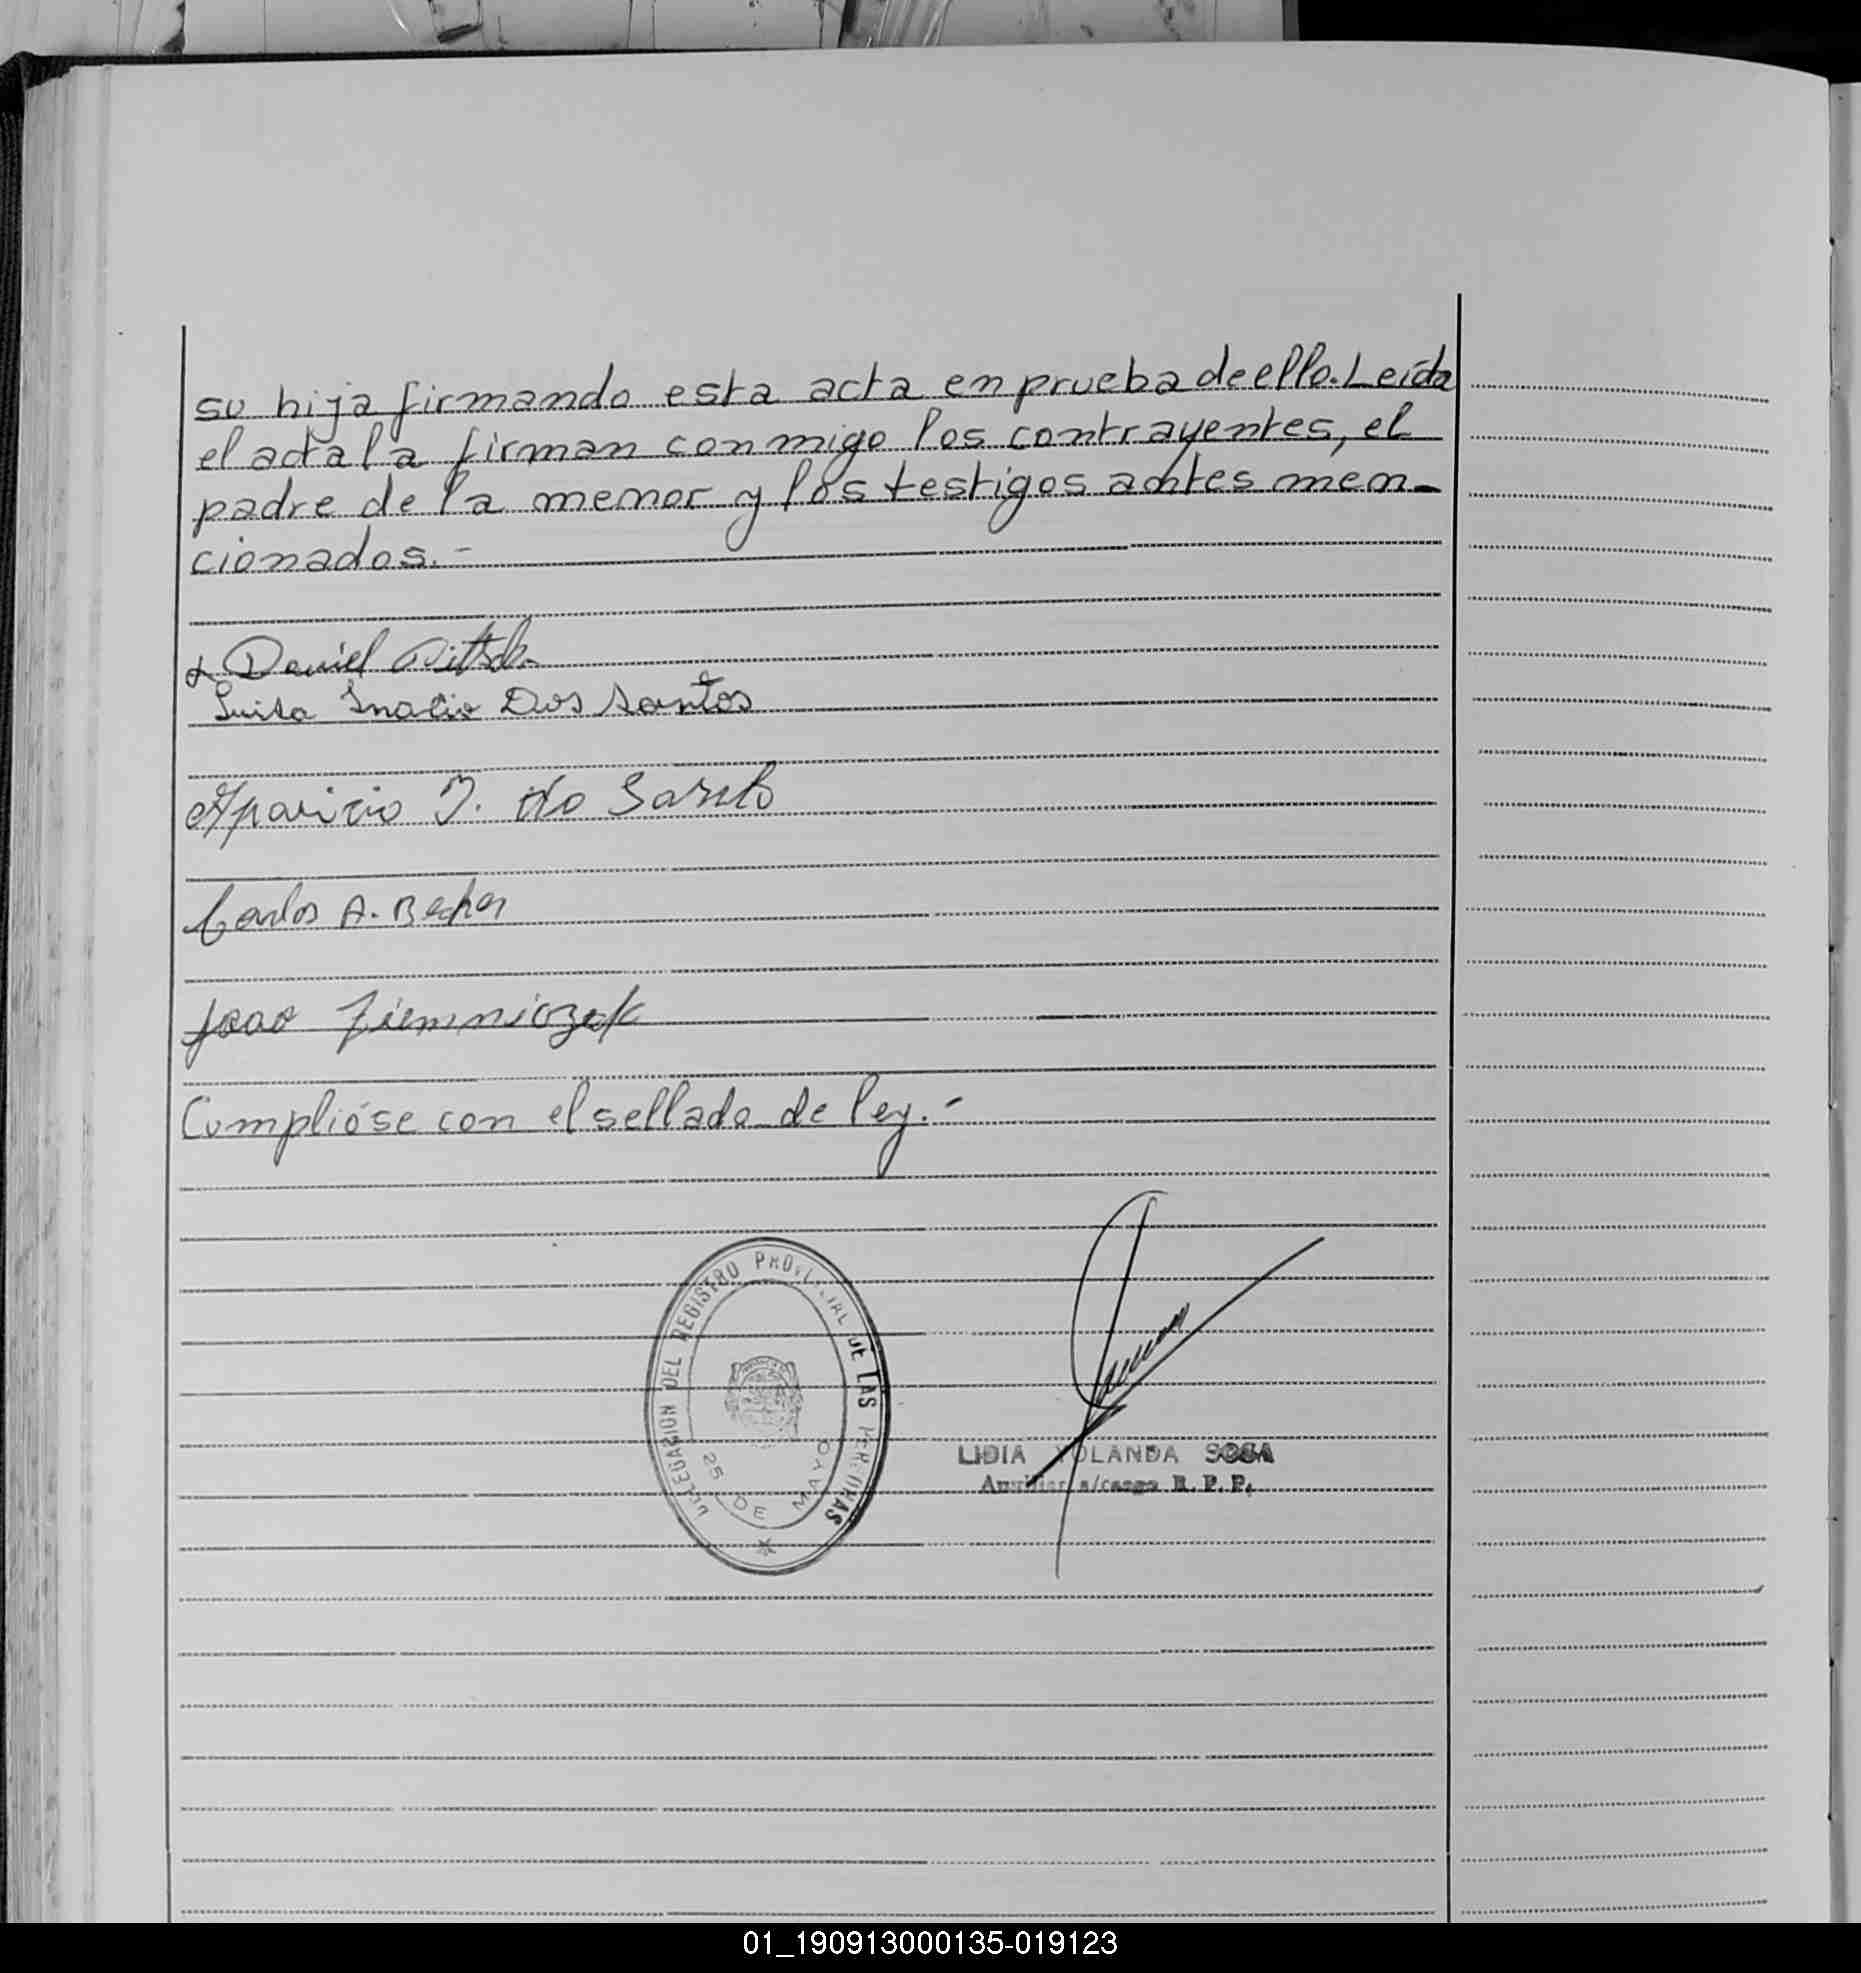 su hija firmando esta acta en prueba de ello. Leída
el acta la firman conmigo los contrayentes, el
padre de la menor y los testigos antes men-
cionados.-
Daniel
Luisa Inacio Dos Santos
Aparicio J. do Santo
Carlos A. Becker
Joao Ziemniczek
Cumplióse con el sellado de ley.-
DELEGACION DEL REGISTRO PROVINCIAL DE LAS PERSONAS
25 DE MAYO
LIDIA YOLANDA SOSA
Auxiliar a/cargo R. P. P.
01_190913000135-019123